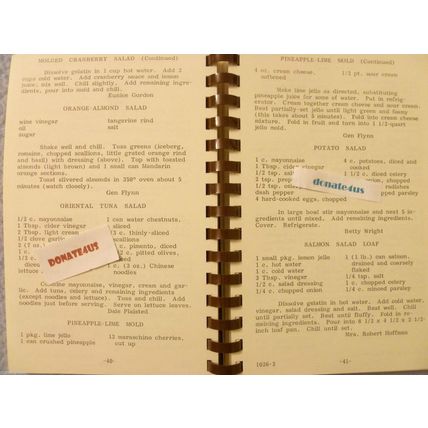 MOLDED CRANBERRY SALAD (Continued)
Dissolve gelatin in 1 cup hot water. Add 2
cups cold water. Add cranberry sauce and lemon
juice, mix well. Chill slightly. Add remaining ingre-
dients, pour into mold and chill.
Eunice Gordon
ORANGE-ALMOND SALAD
wine vinegar tangerine rind
oil salt
sugar
Shake well and chill. Toss greens (iceberg,
romaine, chopped scallions, little grated orange rind
and basil) with dressing (above). Top with toasted
almonds (light brown) and 1 small can Mandarin
orange sections.
Toast slivered almonds in 350° oven about 5
minutes (watch closely).
Gen Flynn
ORIENTAL TUNA SALAD
1/2 c. mayonnaise 1 can water chestnuts,
1 Tbsp. cider vinegar sliced
2 Tbsp. light cream 1/3 c. thinly-sliced
1/2 clove garlic scallions
2 (7 oz. c. pimento, diced
1 c. 1/2 c. pitted olives,
diced sliced
lettuce 1 (3 oz.) Chinese
noodles
DONATE4US
Combine mayonnaise, vinegar, cream and gar-
lic. Add tuna, celery and remaining ingredients
(except noodles and lettuce). Toss and chill. Add
noodles just before serving. Serve on lettuce leaves.
Dale Plaisted
PINEAPPLE-LIME MOLD
1 pkg. lime jello 12 maraschino cherries,
1 can crushed pineapple cut up
-40-
PINEAPPLE-LIME MOLD (Continued)
4 oz. cream cheese, 1/2 pt. sour cream
softened
Make lime jello as directed, substituting
pineapple juice for some of water. Put in refrig-
erator. Cream together cream cheese and sour cream.
Beat partially-set jello until light green and foamy
(this takes about 5 minutes). Fold into cream cheese
mixture. Fold in fruit and turn into 1 1/2-quart
jello mold.
Gen Flynn
POTATO SALAD
1 c. mayonnaise 4 c. potatoes, diced and
1 Tbsp. cider vinegar cooked
2 tsp. salt 1 1/2 c. diced celery
2 tsp. chopped onion
1/2 tsp. radishes
dash pepper chopped parsley
4 hard-cooked eggs, chopped
donate4us
In large bowl stir mayonnaise and next 5 in-
gredients until mixed. Add remaining ingredients.
Cover. Refrigerate.
Betty Wright
SALMON SALAD LOAF
1 small pkg. lemon jello 1 (1 lb.) can salmon,
1 c. hot water drained and coarsely
1 c. cold water flaked
3 Tbsp. vinegar 1/4 tsp. salt
1/2 c. salad dressing 1 c. chopped celery
1/4 c. chopped onion 1/4 c. minced parsley
Dissolve gelatin in hot water. Add cold water,
vinegar, salad dressing and salt. Beat well. Chill
until partially set. Beat until fluffy. Fold in re-
maining ingredients. Pour into 8 1/2 x 4 1/2 x 2 1/2-
inch loaf pan. Chill until set.
Mrs. Robert Hoffman
1026-3 -41-